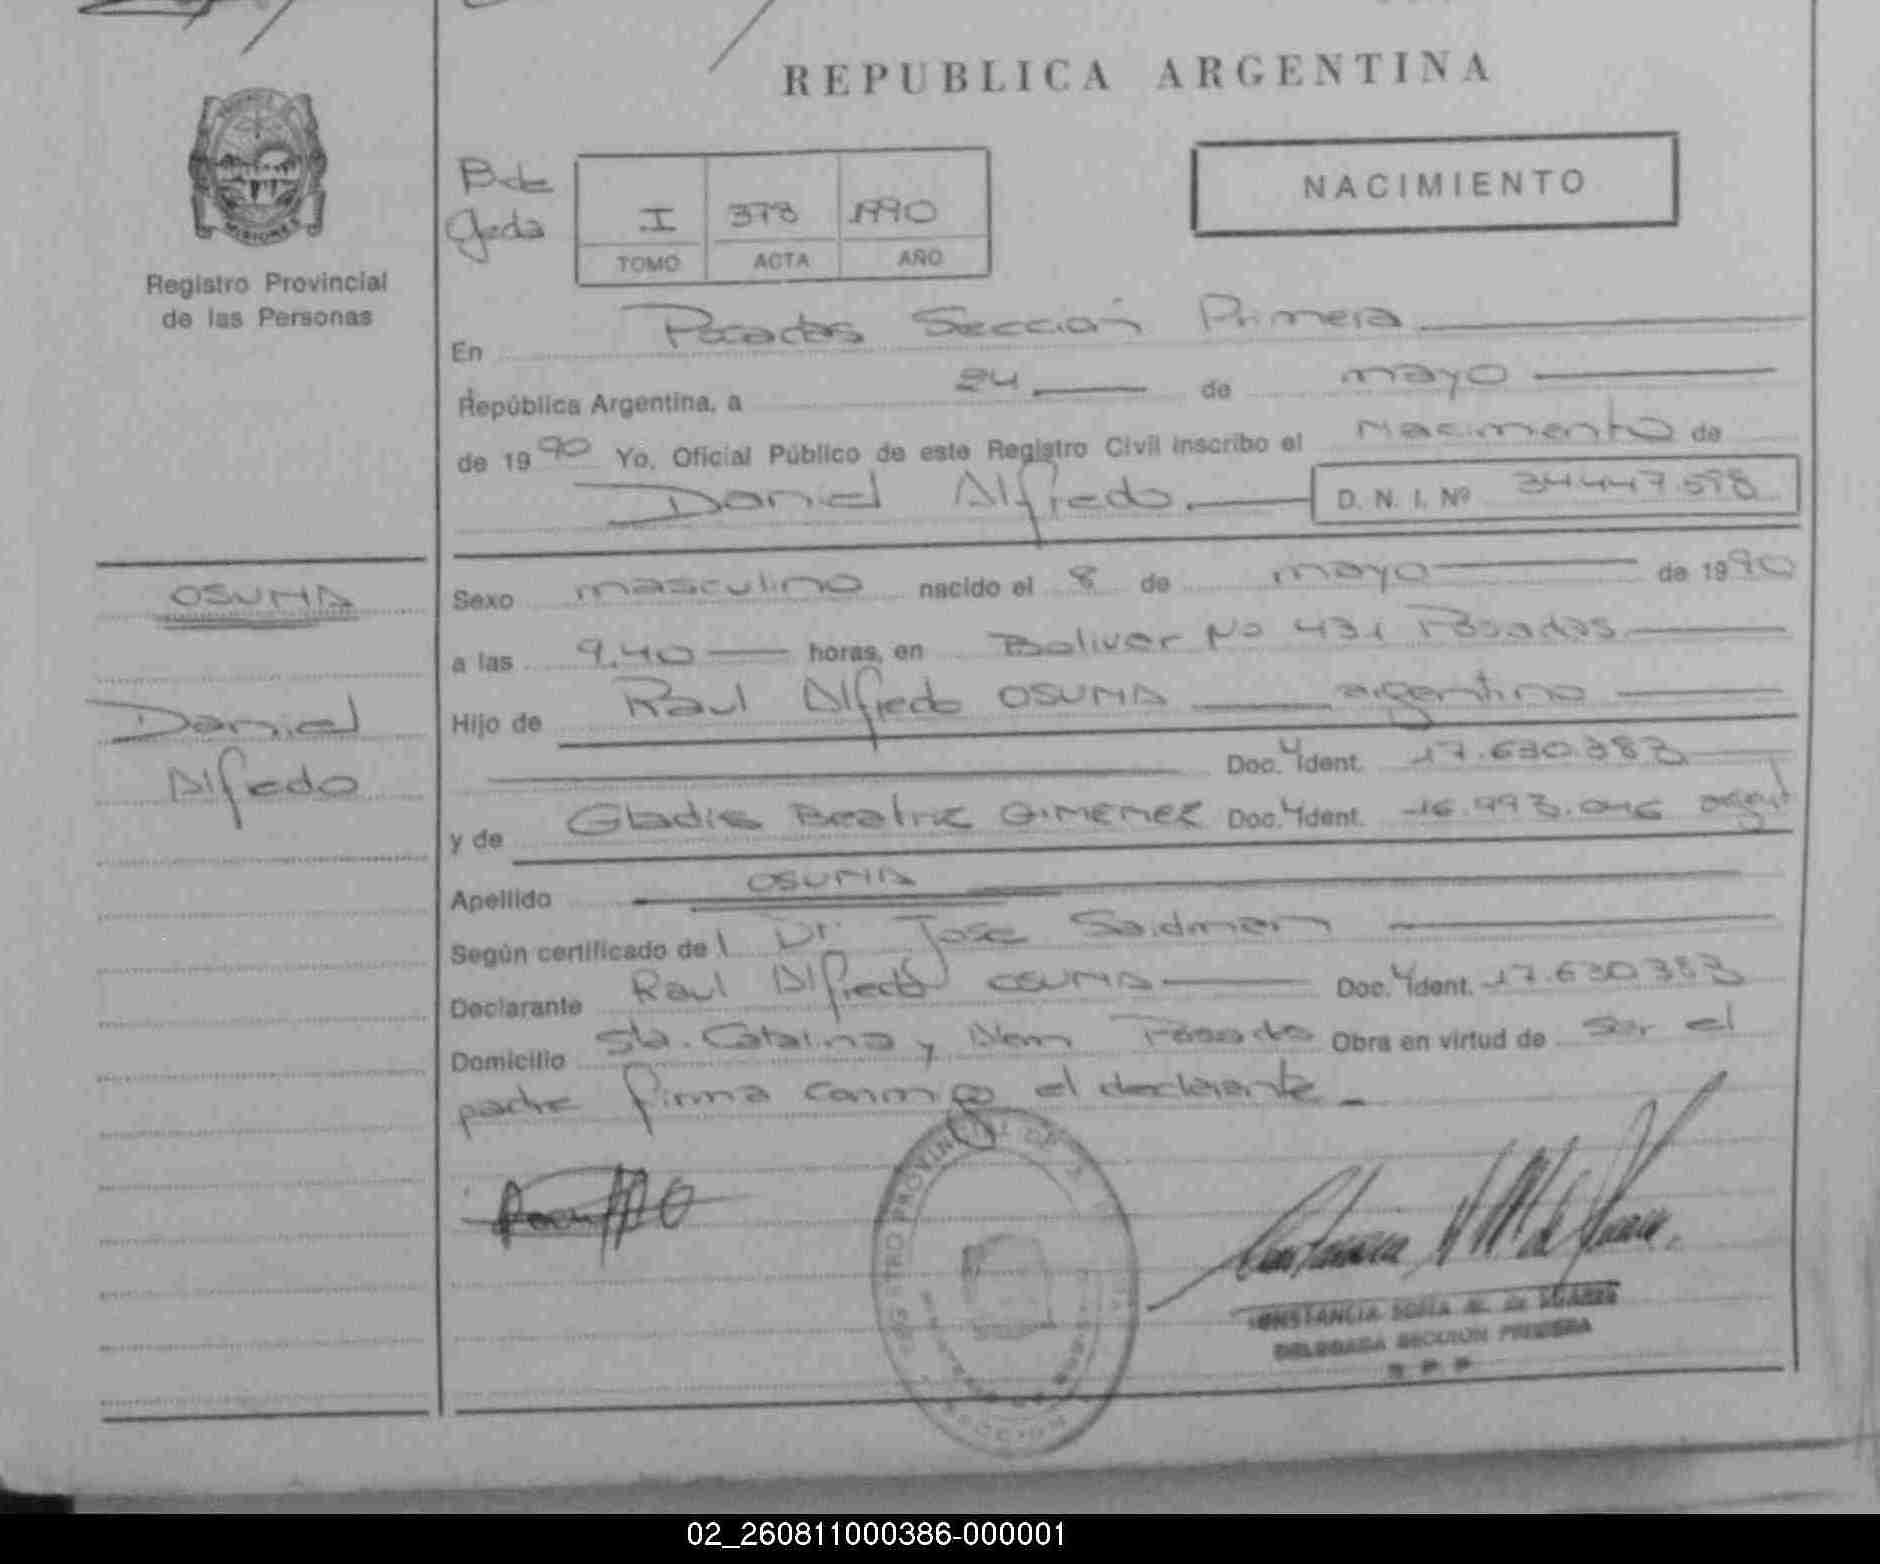 REPUBLICA ARGENTINA
MISIONES
Registro Provincial
de las Personas
I 378 1990
TOMO ACTA AÑO
NACIMIENTO
En Posadas Sección Primera
República Argentina, a 24 de mayo
de 1990 Yo, Oficial Público de este Registro Civil inscribo el Nacimiento de
Daniel Alfredo. D. N. I. Nº 34.447.598
OSUNA
Daniel
Alfredo
Sexo masculino nacido el 8 de mayo de 1990
a las 9.40 horas, en Bolivar No 431 Posadas
Hijo de Raul Alfredo OSUNA argentino
Doc. Ident. 17.630.383
y de Gladis Beatriz GIMENEZ Doc. Ident. 16.993.046 argent
Apellido OSUNA
Según certificado del Dr. Jose Saidman
Declarante Raul Alfredo OSUNA Doc. Ident. 17.630.383
Domicilio Sta. Catalina y Alem Posadas Obra en virtud de ser el
padre firma conmigo el declarante.
CONSTANCIA SOFIA M. de SUAREZ
DELEGADA SECCION PRIMERA
R P P
02_260811000386-000001